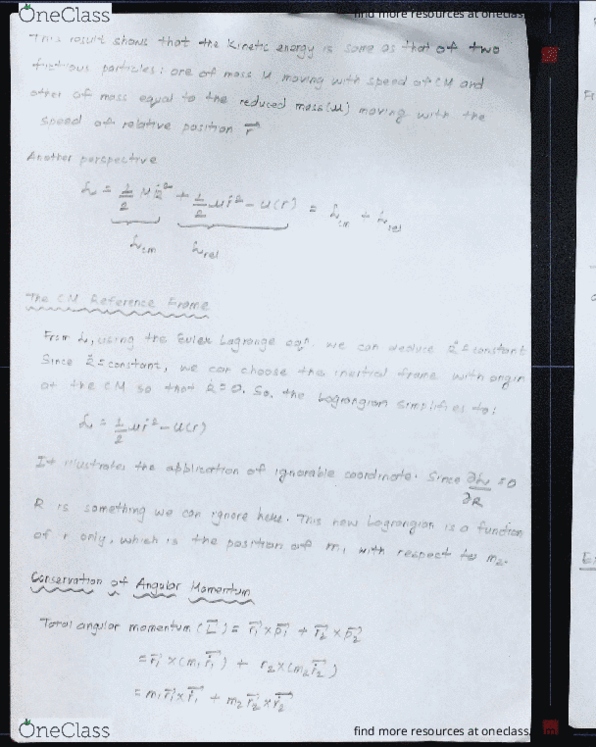 OneClass
find more resources at oneclass.
This result shows that the Kinetic energy is same as that of two
fictitious particles: one of mass M moving with speed of CM and
other of mass equal to the reduced mass (μ) moving with the
speed of relative position r⃗
Another perspective
ℒ = 1/2 MṘ² + 1/2 μṙ² - U(r) = ℒcm + ℒrel
ℒcm ℒrel
The CM Reference Frame
From ℒ, using the Euler Lagrange eqn. we can deduce Ṙ = constant
Since Ṙ = constant, we can choose the inertial frame with origin
at the CM so that Ṙ = 0. So, the Lagrangian simplifies to:
ℒ = 1/2 μṙ² - U(r)
It illustrates the application of ignorable coordinate. Since ∂ℒ/∂R = 0
R is something we can ignore here. This new Lagrangian is a function
of r only, which is the position of m₁ with respect to m₂.
Conservation of Angular Momentum
Total angular momentum (L⃗) = r⃗₁ × p⃗₁ + r⃗₂ × p⃗₂
= r⃗₁ × (m₁ṙ⃗₁) + r₂ × (m₂ṙ⃗₂)
= m₁r⃗₁ × ṙ⃗₁ + m₂r⃗₂ × ṙ⃗₂
OneClass
find more resources at oneclass.